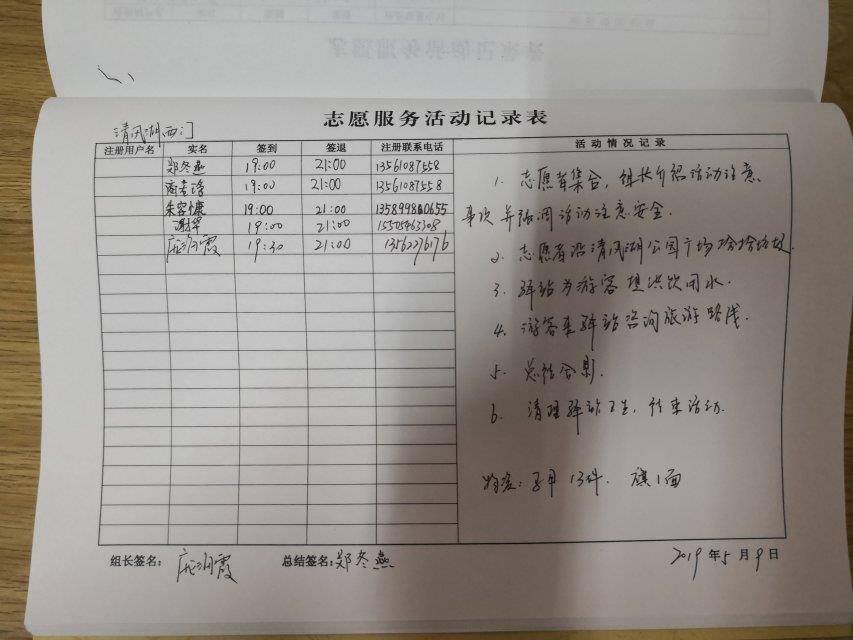 志愿服务活动记录表
清风湖西门
注册用户名 实名 签到 签退 注册联系电话 活动情况记录
郑冬燕 19:00 21:00 13561087558
19:00 21:00 13561087558
朱容慷 19:00 21:00
19:00 21:00 15505463308
庞润霞 19:30 21:00 13562276176
1. 志愿者集合，组长介绍活动注意
事项并强调活动注意安全.
2. 志愿者沿清风湖公园广场捡拾垃圾.
3. 驿站为游客提供饮用水.
4. 游客来驿站咨询旅游路线.
5. 总结合影.
6. 清理驿站卫生，结束活动.
物资：马甲13件. 旗1面
组长签名： 庞润霞 总结签名：郑冬燕 2019年5月9日